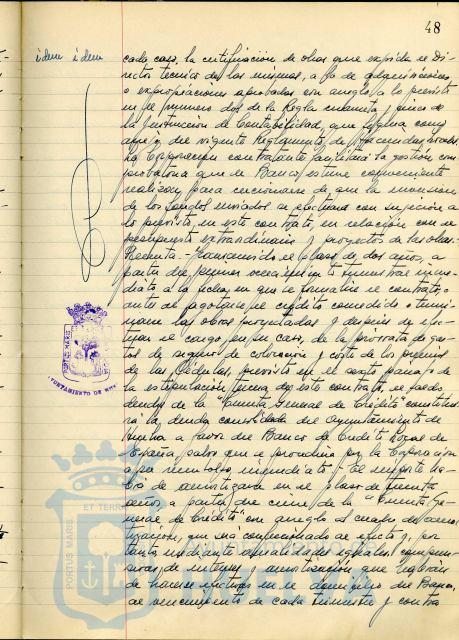 48
idem idem
cada caso, la certificación de obras que expida el Di-
rector técnico de las mismas, o la de adquisiciones
o expropiaciones aprobadas con arreglo a lo previsto
en el número dos de la Regla cuarenta y cinco de
la Instrucción de Contabilidad, que figura como
anejo del vigente Reglamento de Haciendas locales.
La Corporación contratante facilitará la gestión com-
probatoria que el Banco estime conveniente
realizar para cerciorarse de que la inversión
de los fondos enviados se efectúa con sujeción a
lo previsto en este contrato, en relación con el
presupuesto extraordinario y proyectos de las obras.
Transcurrido el plazo de dos años, a
partir del primer vencimiento trimestral inme-
diato a la fecha en que se formalice el contrato, o
antes de agotarse el crédito concedido o termi-
narse las obras proyectadas y después de efec-
tuar el cargo, en su caso, de la prorrata de gas-
tos de
de las Cédulas, previsto en el sexto párrafo de
la estipulación tercera de este contrato, el saldo
deudor de la "Cuenta General de Crédito" constitui-
rá la deuda consolidada del Ayuntamiento de
Huelva a favor del Banco de Crédito Local de
España, salvo que se produzca por la Corporación
a su reembolso inmediato. El importe ha-
brá de amortizarse en el plazo de
años, a partir del cierre de la "Cuenta Ge-
neral de Crédito" con arreglo al cuadro de amor-
tización, que será confeccionado al efecto y, por
tanto mediante anualidades iguales, compren-
sivas de interés y amortización, que habrán
de hacerse efectivas en el domicilio del Banco,
al vencimiento de cada trimestre y contra
PORTUS MARIS
AYUNTAMIENTO DE
PORTUS MARIS ET TERRAE